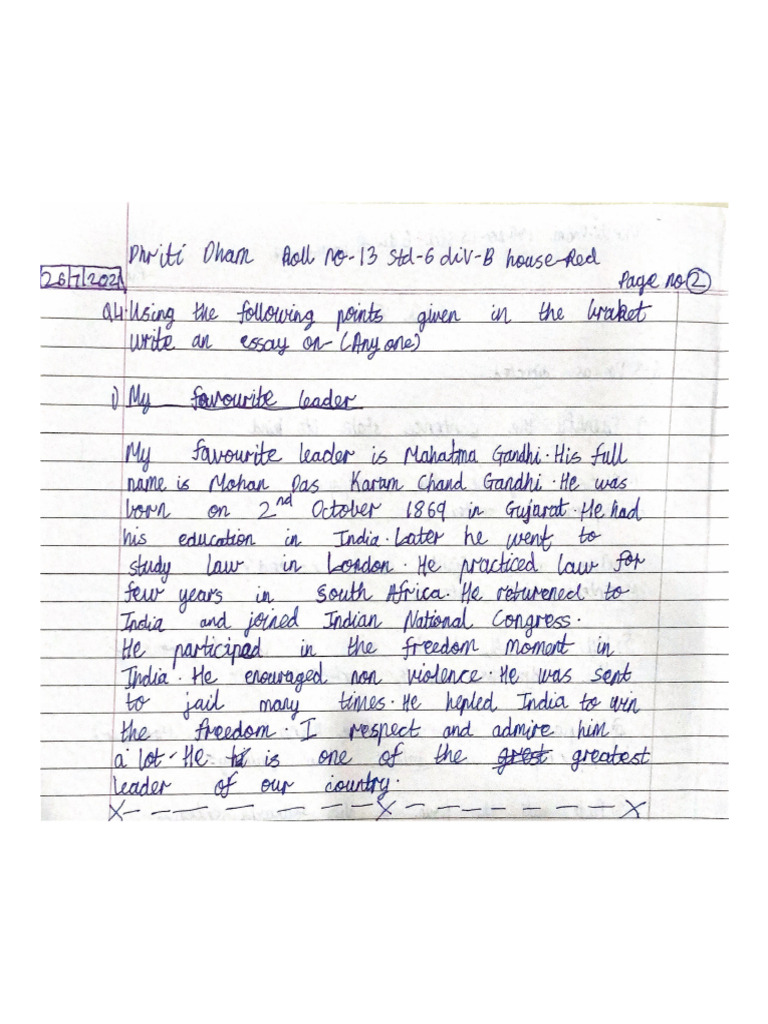 Dhriti Dham Roll no-13 Std-6 div-B house-Red
26/7/2021 Page no 2
Q4. Using the following points given in the braket
write an essay on- (Any one)
i) My favourite leader
My favourite leader is Mahatma Gandhi. His full
name is Mohan Das Karam Chand Gandhi. He was
born on 2nd October 1869 in Gujarat. He had
his education in India. Later he went to
study law in London. He practiced law for
few years in South Africa. He returened to
India and joined Indian National Congress.
He participad in the freedom moment in
India. He enouraged non violence. He was sent
to jail many times. He hepled India to win
the freedom. I respect and admire him
a lot. He is one of the grest greatest
leader of our country.
X - - - - - X - - - - - X